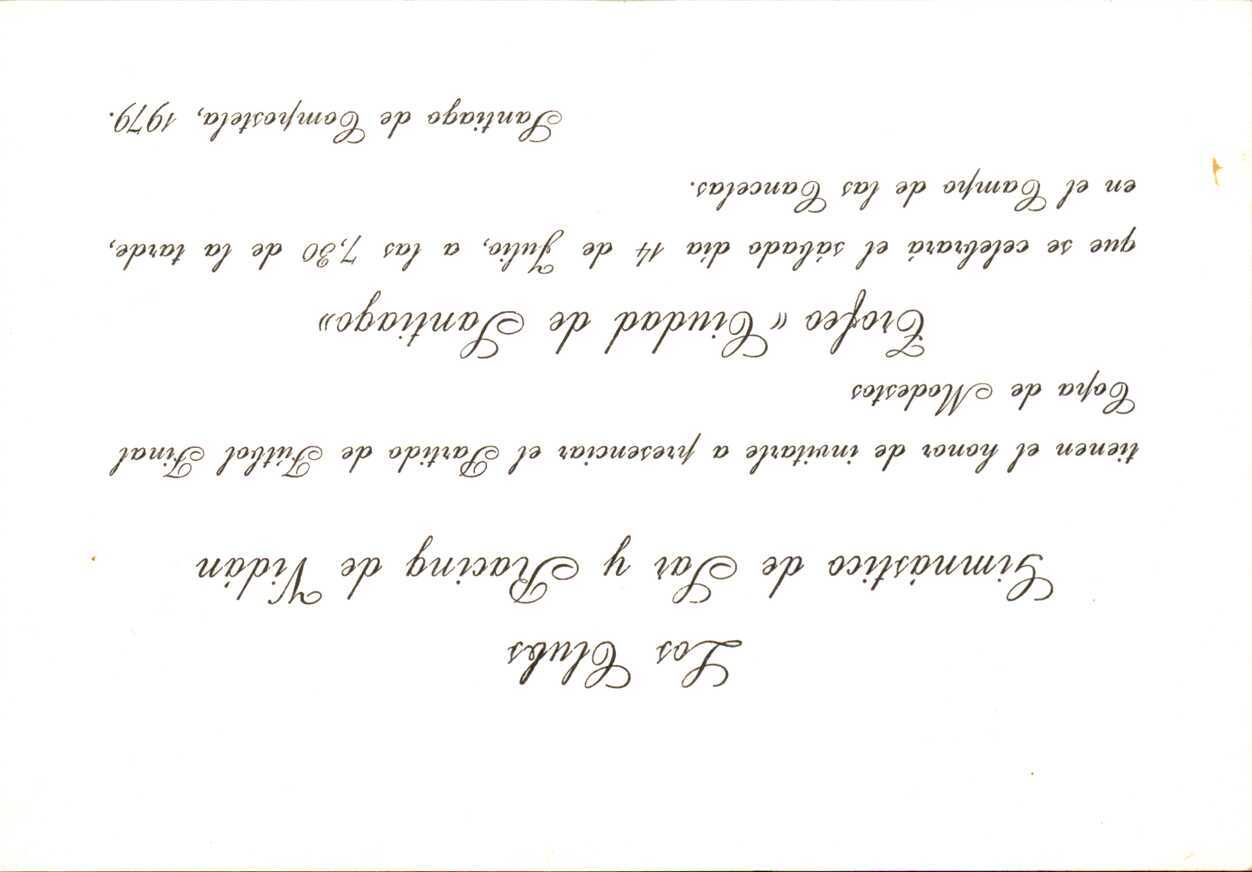 Los Clubs
Gimnástico de Sar y Racing de Vidán
tienen el honor de invitarle a presenciar el Partido de Fútbol Final
Copa de Modestos
Trofeo «Ciudad de Santiago»
que se celebrará el sábado día 14 de Julio, a las 7,30 de la tarde,
en el Campo de las Cancelas.
Santiago de Compostela, 1979.